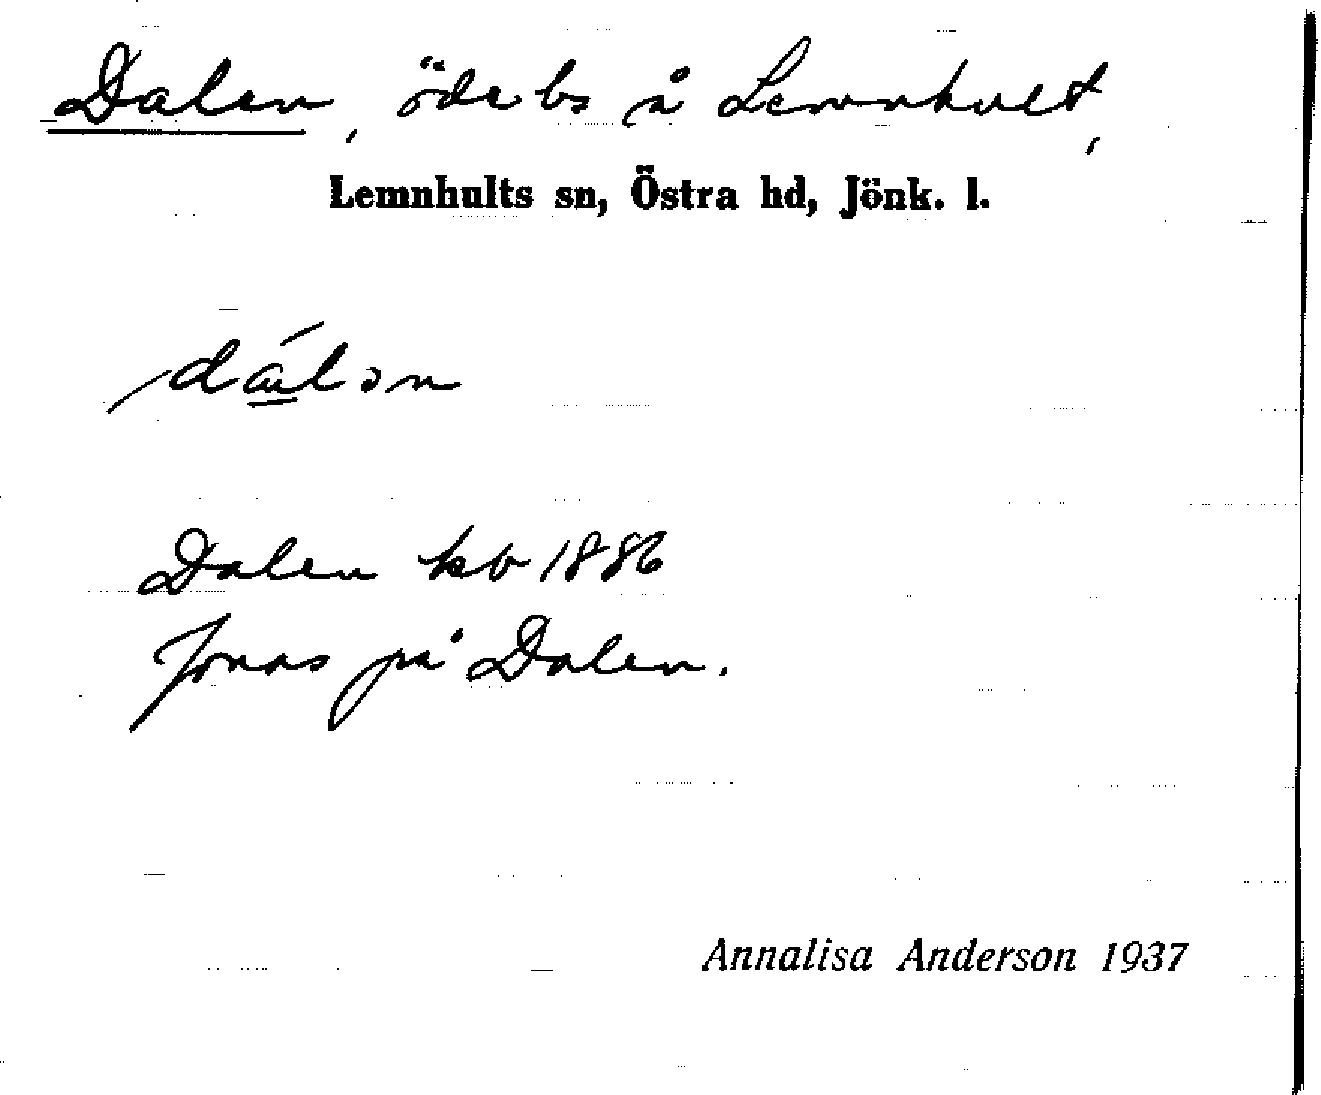 Dalen, öde bs å Lemnhult,
Lemnhults sn, Östra hd, Jönk. l.
Dalen kb 1886
Jonas på Dalen.
Annalisa Anderson 1937